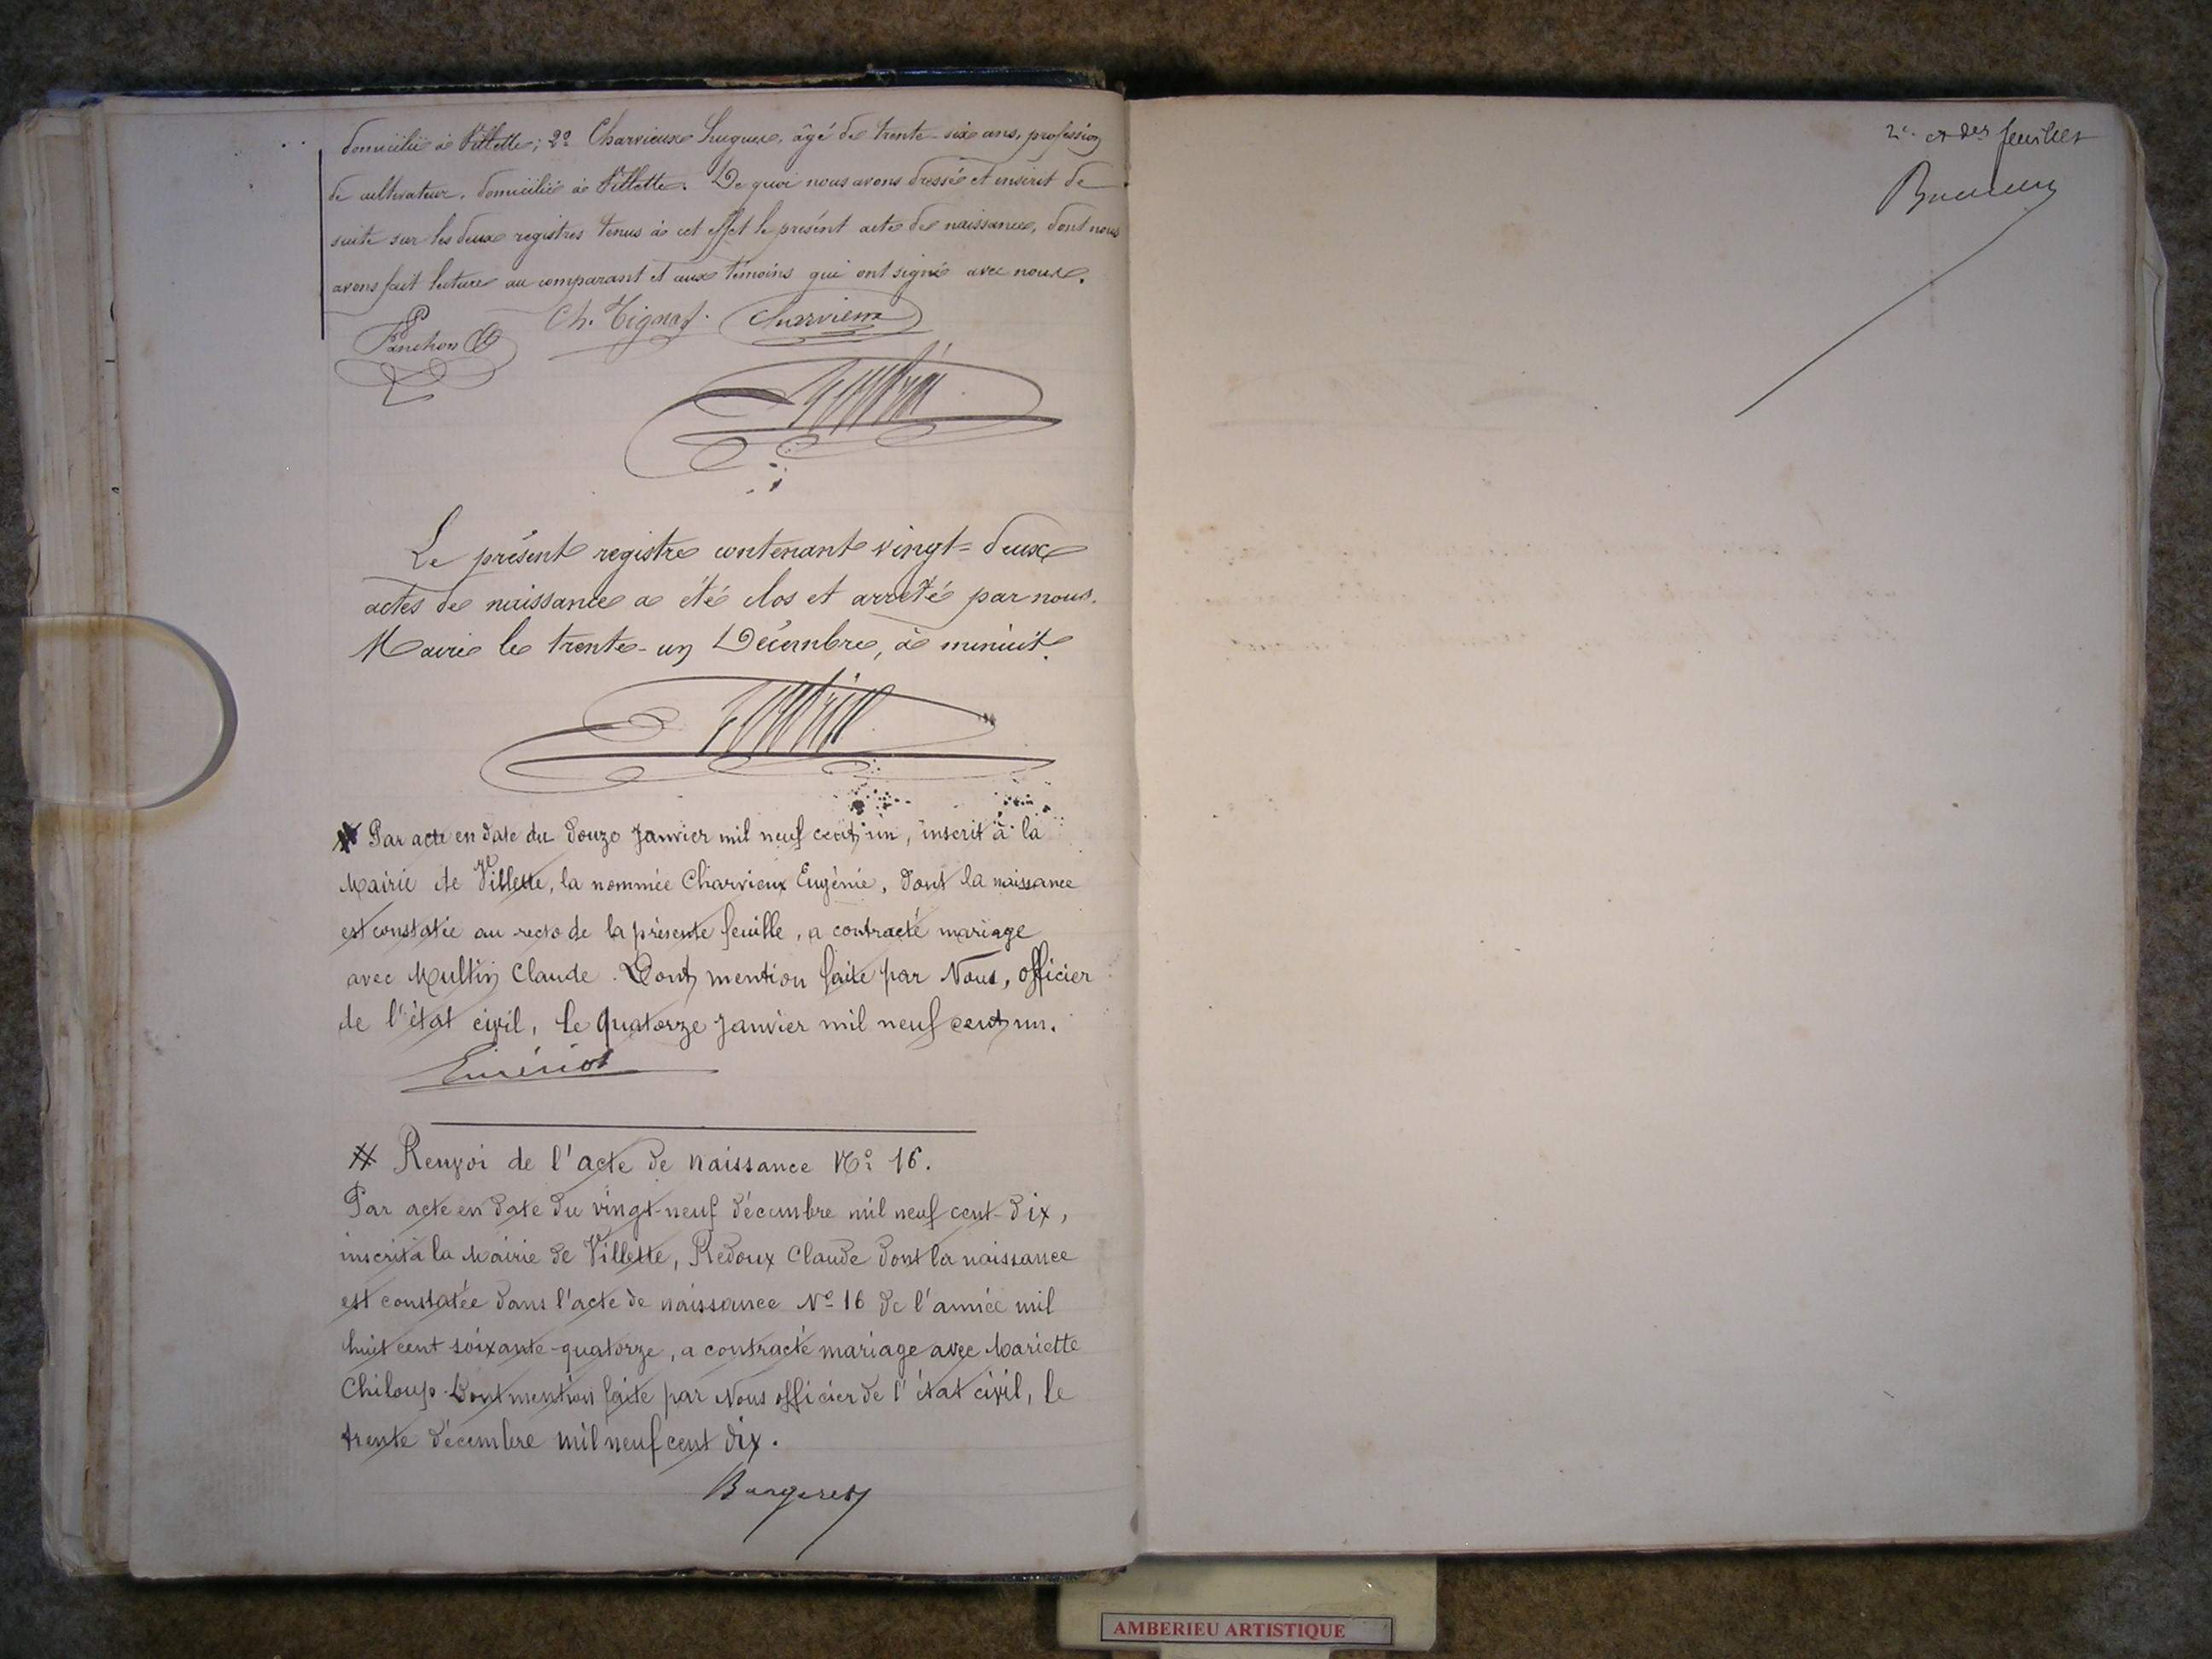 domicilié à Villette; 2º Charvieux Hugues, âgé de trente-six ans, profession
de cultivateur, domicilié à Villette. De quoi nous avons dressé et inscrit de
suite sur les deux registres tenus à cet effet le présent acte de naissance, dont nous
avons fait lecture au comparant et aux témoins qui ont signé avec nous.
Panchon Ch. Tignat. Charvieux
Le présent registre contenant vingt-deux
actes de naissance a été clos et arrêté par nous.
Maire le trente-un Décembre, à minuit.
Par acte en date du douze Janvier mil neuf cent un, inscrit à la
Mairie de Villette, la nommée Charvieux Eugénie, dont la naissance
est constatée au recto de la présente feuille, a contracté mariage
avec Multin Claude. Dont mention faite par Nous, officier
de l'état civil, le quatorze Janvier mil neuf cent un.
# Renvoi de l'acte de naissance Nº 16.
Par acte en date du vingt-neuf décembre mil neuf cent-dix,
inscrit à la Mairie de Villette, Redoux Claude dont la naissance
est constatée dans l'acte de naissance Nº 16 de l'année mil
huit cent soixante-quatorze, a contracté mariage avec Mariette
Chiloup. Dont mention faite par Nous officier de l'état civil, le
trente décembre mil neuf cent dix.
2e et der feuillet
AMBERIEU ARTISTIQUE